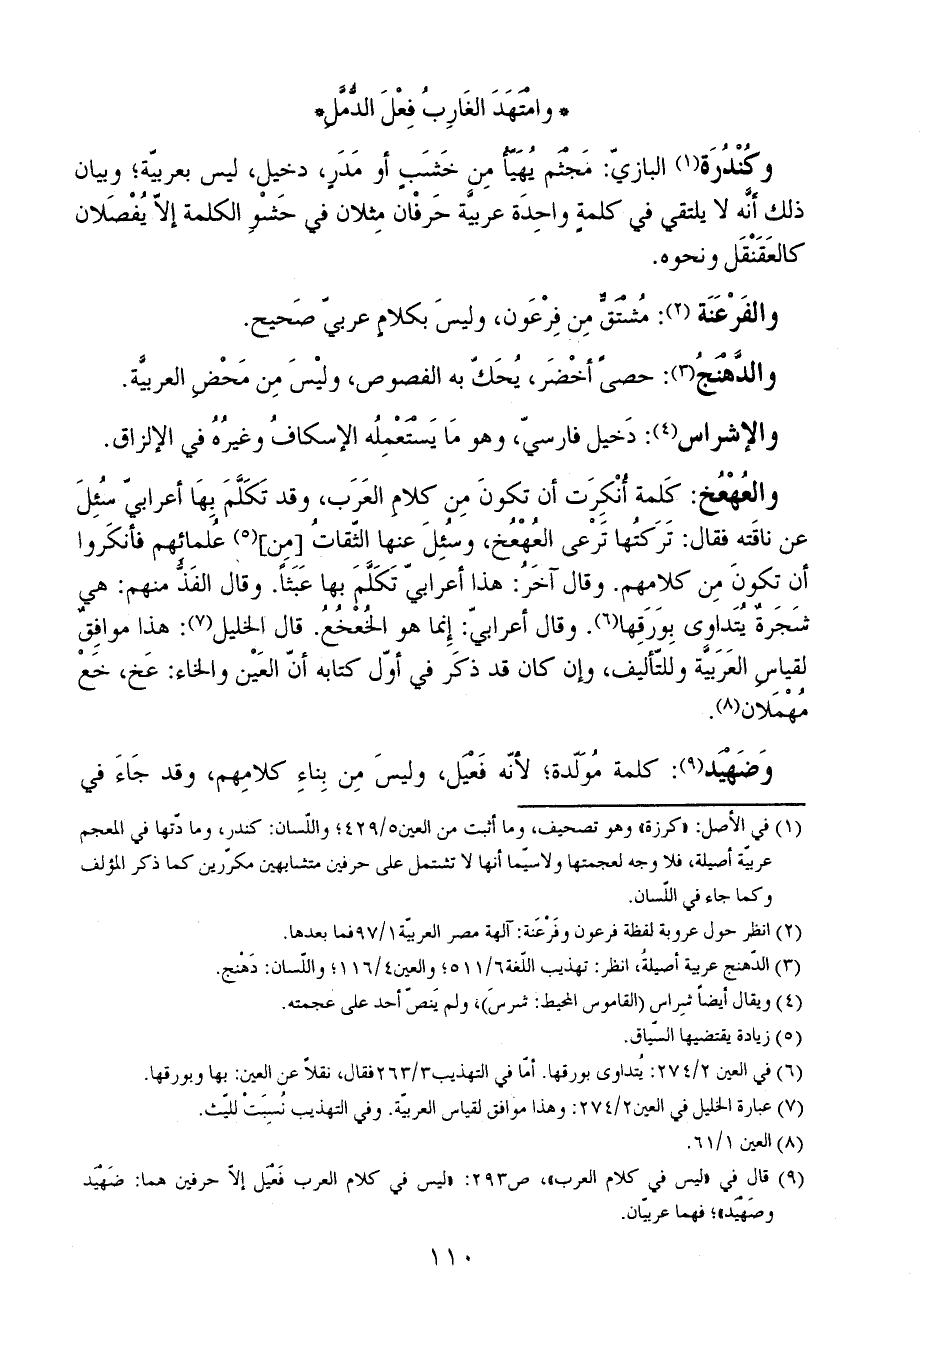 * وامْتَهَدَ الغَارِبُ فِعْلَ الدُّمَّلِ *
وكُنْدُرَة(١) البازيّ: مَجثَم يُهَيَّأُ مِن خَشَبٍ أو مَدَرٍ، دخيل، ليس بعربيّة؛ وبيان
ذلك أنَّه لا يلتقي في كلمةٍ واحِدَة عربيَّة حَرفَان مثلان في حَشْوِ الكلمة إلاّ يُفْصَلان
كالعَقَنْقَل ونحوه.
والفَرْعَنَة (٢): مُشْتَقٌّ مِن فِرْعَون، وليسَ بكلامٍ عربيّ صَحيح.
والدَّهْنَجُ(٣): حصىً أخْضَر، يُحَكّ به الفصوص، وليْسَ مِن مَحَضِ العربيَّة.
والإشراس(٤): دَخيل فارسيّ، وهو مَا يَسْتَعْمِلُه الإسكافُ وغيرُهُ في الإلزاق.
والعُهْعُخ: كَلمة أُنْكِرَت أن تكونَ مِن كلامِ العَرَب، وقد تَكَلَّمَ بِهَا أعرابيّ سُئِلَ
عن ناقَته فقال: تَركتُها تَرْعى العُهْعُخ، وسُئِلَ عنها الثّقاتُ [مِن](٥) عُلمائِهم فأنكَروا
أن تكونَ مِن كلامهم. وقال آخَرُ: هذا أعرابيّ تَكَلَّمَ بها عَبَثاً. وقال الفَذُّ منهم: هي
شَجَرَةٌ يُتَداوى بِوَرَقِها(٦). وقال أعرابيّ: إنما هو الخُعْخُعُ. قال الخليل(٧): هذا موافِقٌ
لقياسِ العَرَبيَّة وللتَّأليف، وإن كان قد ذكَر في أوّل كتابه أنّ العَيْن والخاء: عَخ، خَعْ
مُهْمَلان(٨).
وَضَهْيَد(٩): كلمة مُوَلّدة؛ لأنّه فَعْيَل، وليسَ مِن بِناءِ كلامِهم، وقد جَاءَ في
(١) في الأصل: «كرزة» وهو تصحيف، وما أثبت من العين٤٢٩/٥؛ واللّسان: كندر، وما دّتها في المعجم
عربيّة أصيلة، فلا وجه لعجمتها ولاسيّما أنها لا تشتمل على حرفين متشابهين مكرّرين كما ذكر المؤلف
وكما جاء في اللّسان.
(٢) انظر حول عروبة لفظة فرعون وفَرْعَنَة: آلهة مصر العربيّة٩٧/١فما بعدها.
(٣) الدّهنج عربية أصيلةُ، انظر: تهذيب اللّغة٥١١/٦؛ والعين١١٦/٤؛ واللّسان: دَهْنَج.
(٤) ويقال أيضاً شِراس (القاموس المحيط: شرسَ)، ولم يَنصّ أحد على عجمته.
(٥) زيادة يقتضيها السّياق.
(٦) في العين ٢٧٤/٢: يُتداوى بورقها. أمّا في التهذيب٢٦٣/٣فقال، نقلاً عن العين: بها وبورقها.
(٧) عبارة الخليل في العين٢٧٤/٢: وهذا موافق لقياس العربيّة. وفي التهذيب نُسِبَتْ للّيث.
(٨) العين ٦١/١.
(٩) قال في «ليس في كلام العرب»، ص٢٩٣: «ليس في كلام العرب فَعْيَل إلاّ حرفين هما: ضَهْيَد
وصَهْيَد»؛ فهما عربيّان.
١١٠